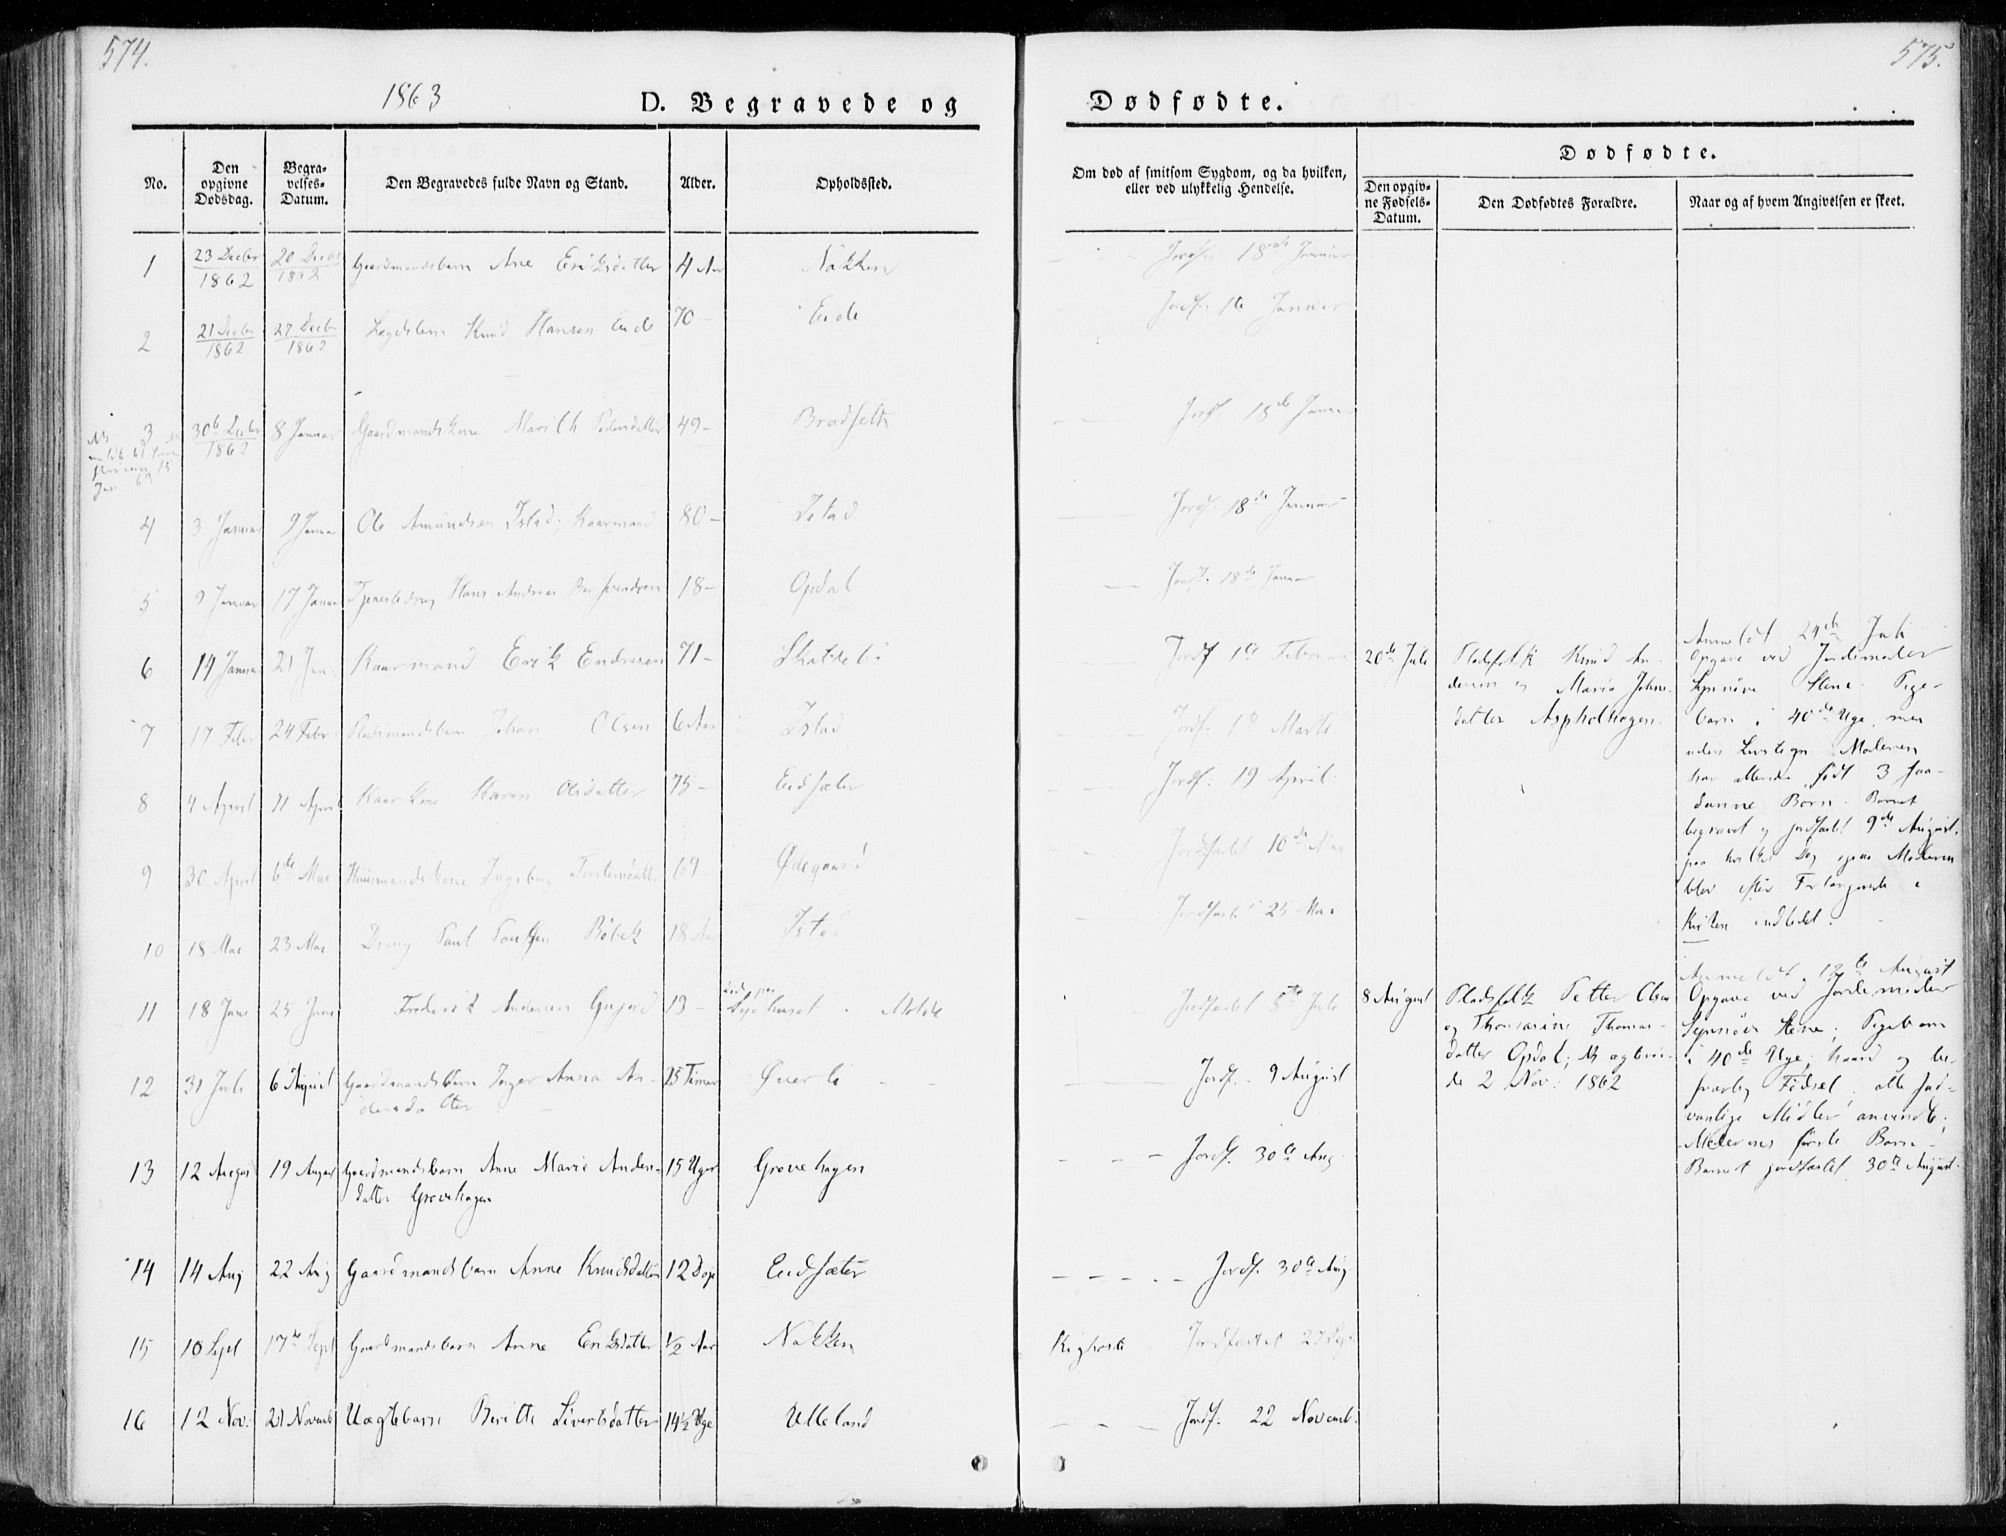 574.
575.
1863
D. Begravede og
Dødfødte.
No.
Den opgivne Dødsdag.
Begravelses-Datum.
Den Begravedes fulde Navn og Stand.
Alder.
Opholdssted.
Om død af smitsom Sygdom, og da hvilken, eller ved ulykkelig Hendelse.
Dødfødte.
Den opgivne Fødsels-Datum.
Den Dødfødtes Forældre.
Naar og af hvem Angivelsen er skeet.
1 23 Decbr 1862 Gaardmandsbarn Ane Eriksdatter 4 Aar Nakken Jordf. 18 Januar
2 21 Decbr 1862 27 Decbr 1862 Lægdslem Knud Hansen Eide 70 Eide Jordf. Januar
3 30te Decbr 1862 8 Januar Gaardmandskone Marith Pedersdatter 49 Jordf 18de Januar
4 3 Januar 9 Januar Ole Amundsen Istad; Kaarmand 80 – Istad Jordf. 18de Januar
5 9 Januar 17 Januar Hans Andreas 18 – Opdal Jordf. 18de Januar
6 14 Januar 21 Jan. Kaarmand Erik Endresen 71 – Jordf 1te Februar
7 17 Febr 24 Febr. Pladsmandsbarn Johan Olsen 6 Aar Istad Jordf. 1te Marts
8 4 April 11 April Kaarkone Karen Olsdatter 75 – Eidsæter Jordf. 19 April
9 30 April 6te Mai Huusmandskone Ingeborg 69 – Ødegaard Jordfæstet 10de Mai
10 18 Mai 23 Mai Dreng Paul Bøbek 18 Aar Jordfæstet 25 Mai
11 18 Juni 25 Juni Frederik Andersen 13 – Sygehuset i Molde Jordfæstet 5te Juli
12 31 Juli 6 August Gaardmandsbarn Inger Anna An-
dersdatter 15 Timer Øverli Jordf. 9 August
13 12 August 19 August Gaardmandsbarn Anne Marie Anders-
datter Grovehagen 15 Uger Grovehagen Jordf. 30te Aug
14 14 Aug 22 Aug Gaardmandsbarn Anne Knudsdatter 12 Dage Eidsæter Jordf. 30te Aug
15 10 Sept 17de Sept Gaardmandsbarn Anne Eriksdatter ½ Aar Nakken Kighoste Jordfæstet 27 Sep
16 12 Nov. 21 Novemb Uægtebarn Beritte Sivertsdatter 14½ Uge Ulleland Jordf. 22 Novemb.
20de Juli Pladsfolk Knud An-
dersen og Maria Johns-
datter Aspholhagen.
Anmeldt 24de Juli
Opgave ved Jordemoder
Synnøve Stene. Pige-
barn i 40de Uge, men
uden Livstegn. Moderen
har allerede født 3 saa-
danne Børn. Barnet
begravet og jordfæstet 9de August,
paa hvilken Dag ogsaa Moderen
blev efter Forlangende i
Kirken indledet.
8 August Pladsfolk Petter Olsen
og Thomasine Thomas-
datter Opdal; NB ægtevie-
de 2 Nov. 1862
Anmeldt 12te August
Opgave ved Jordemoder
Synnøve Stene; Pigebarn
i 40de Uge; haard og be-
sværlig Fødsel, alle sæd-
vanlige Midler anvendte;
Moderens første Barn –
Barnet jordfæstet 30te August.